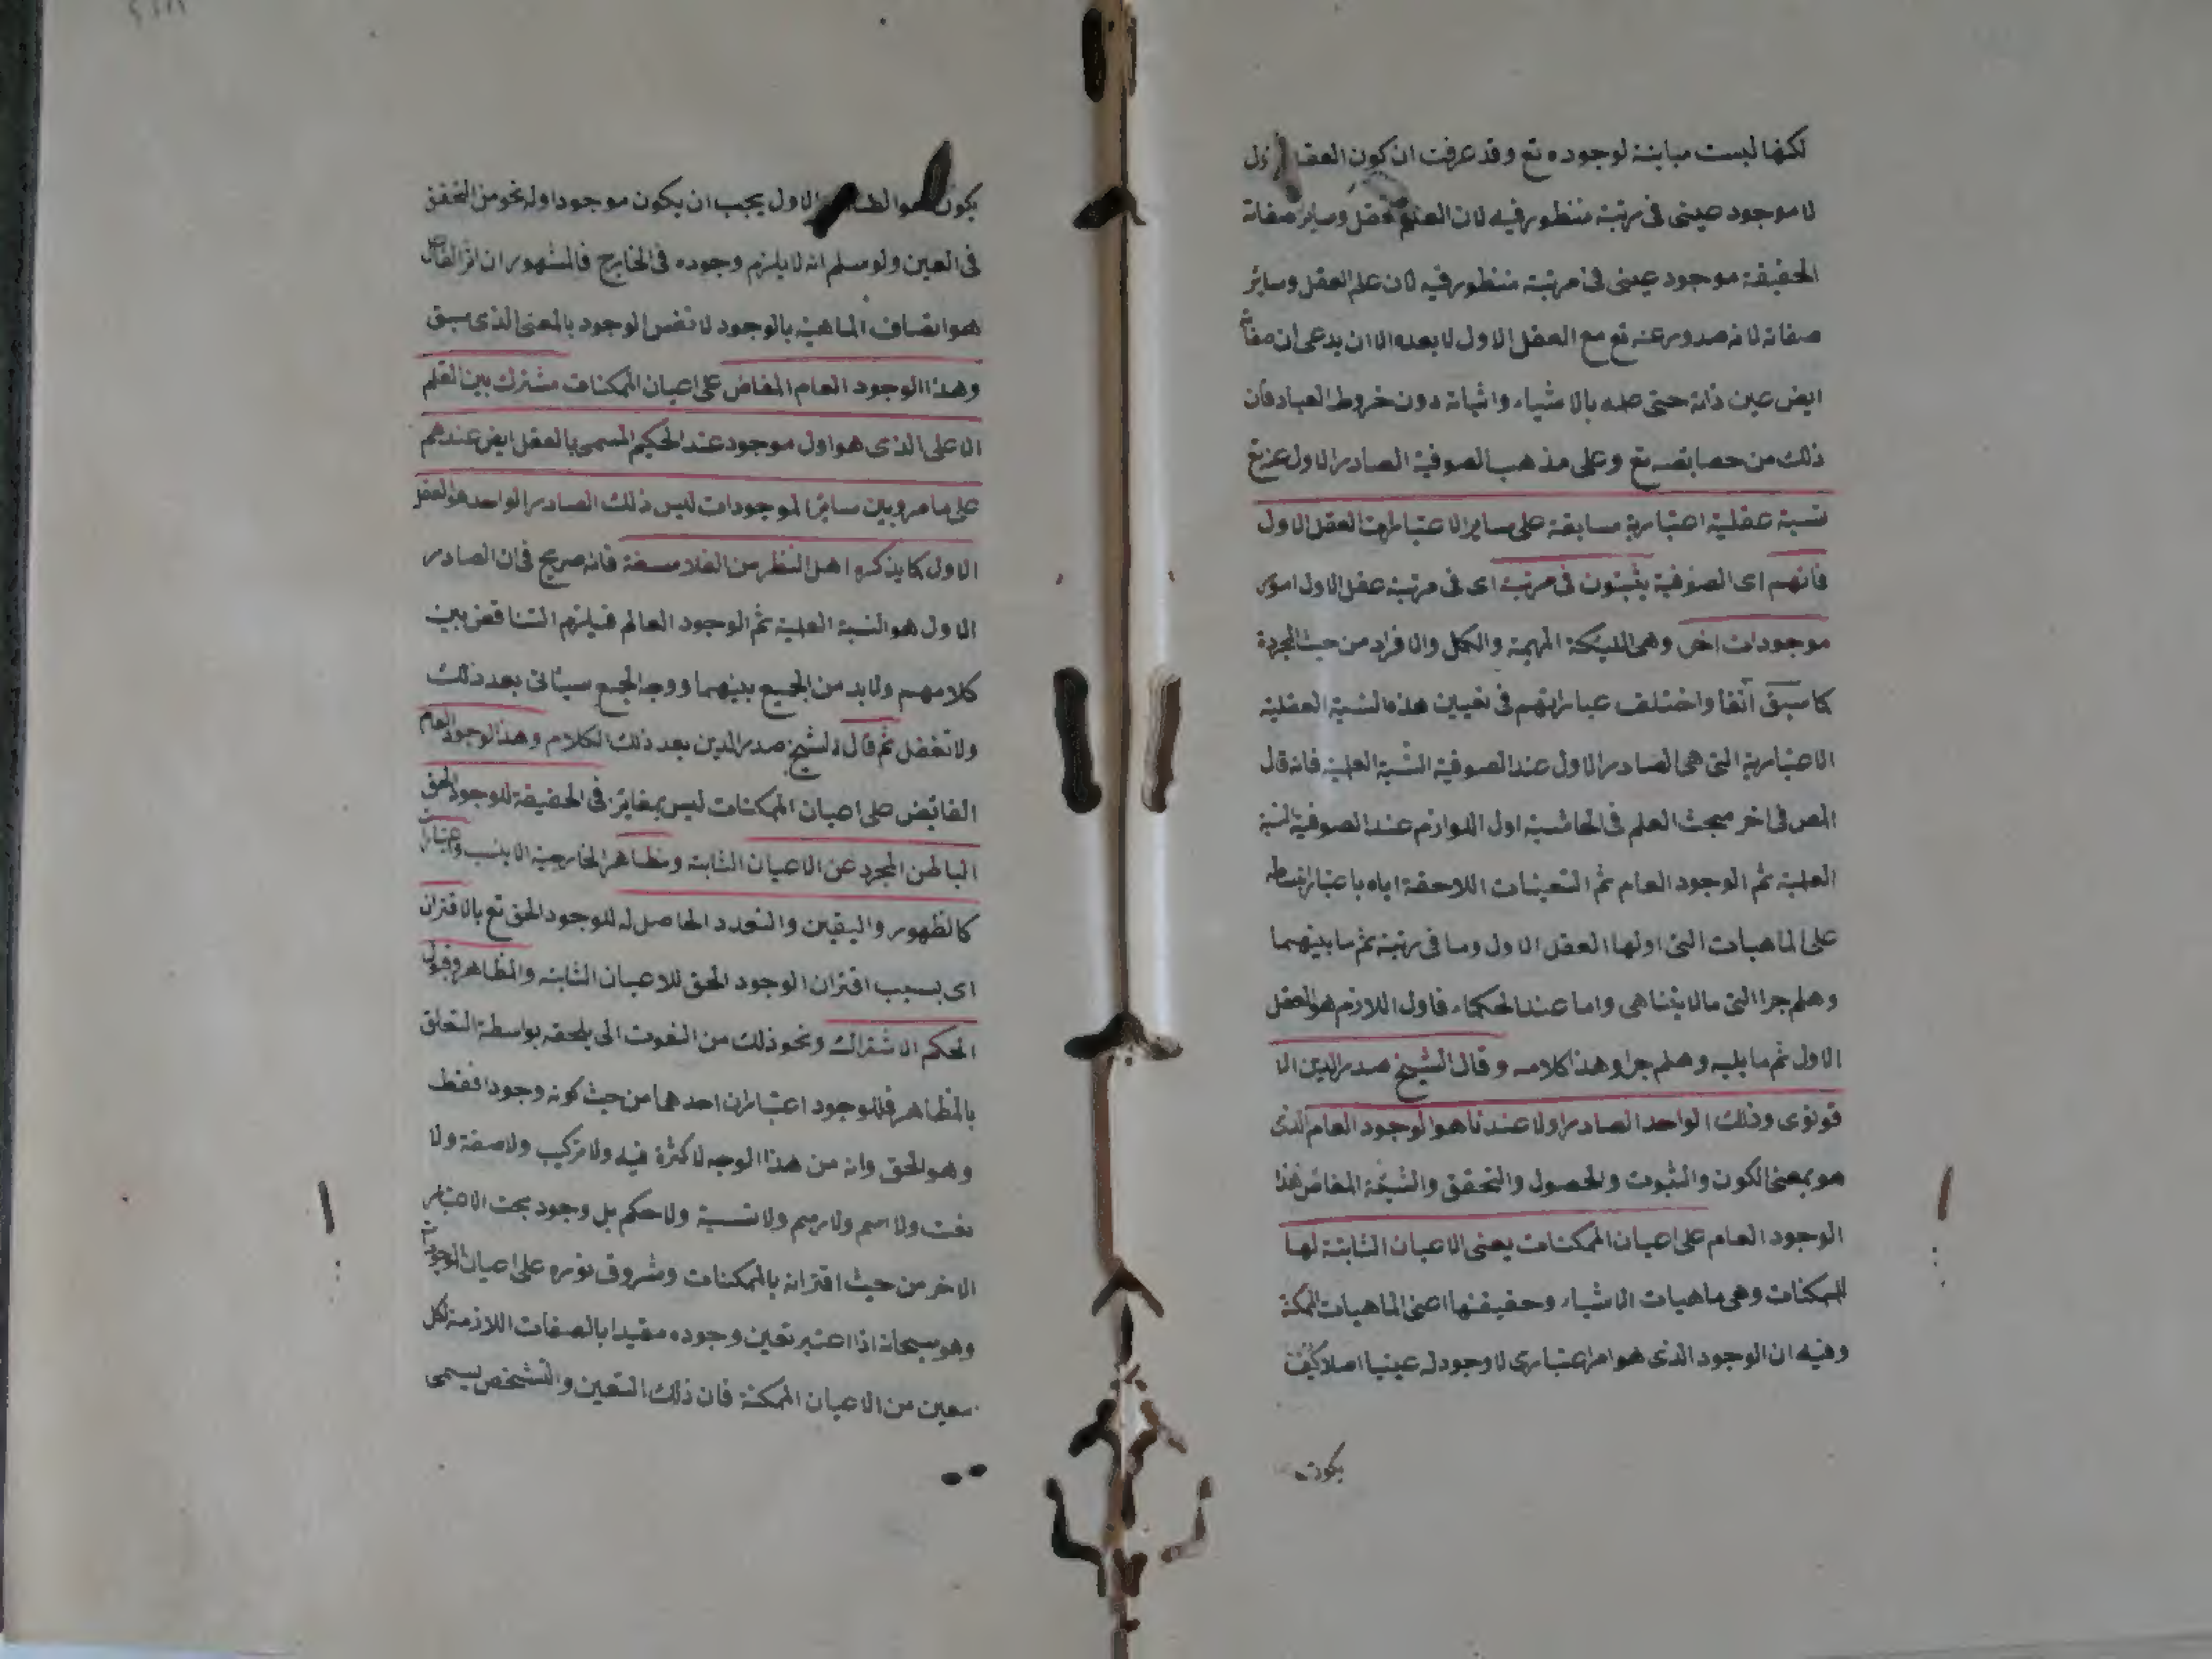 لكنها ليست مباينة لوجوده تع وقد عرفت ان كون العقل الاول
لا موجود عينى فى مرتبة منظور فيه لان العلم العقل وسائر صفاته
الحقيقة موجود عينى فى مرتبة منظور فيه لان علم العقل وسائر
صفاته لانه صدور عنه تع مع العقل الاول لا بعده الا ان يدعى ان صفاته
ايض عين ذاته حتى علمه بالاشياء واثباته دون خروط العباد فان
ذلك من خصايصه تع وعلى مذهب الصوفية الصادر الاول عنه تع
نسبة عقلية اعتبارية سابقة على ساير الاعتبارات العقل الاول
فانهم اى الصوفية يثبتون فى مرتبته اى فى مرتبة عقل الاول امور
موجودات اخر وهى الملئكة المهيمة والكمل والافراد من حيث المجردة
كما سبق آنفا واختلف عباراتهم فى تعيين هذه النسبة العقلية
الاعتبارية التى هى الصادر الاول عند الصوفية النسبة العلمية فانه قال
المص فى اخر مبحث العلم فى الحاشية اول اللوازم عند الصوفية النسبة
العلمية ثم الوجود العام ثم التعينات اللاحقة اياه باعتبار انبساطه
على الماهيات التى اولها العقل الاول وما فى رتبته ثم ما بينهما
وهلم جرا التى مالا يتناهى واما عند الحكماء فاول اللازم هو العقل
الاول ثم ما يليه وهلم جرا وهذا كلامه وقال الشيخ صدر الدين الا
قونوى وذلك الواحد الصادر اولا عندنا هو الوجود العام الذى
هو بمعنى الكون والثبوت والحصول والتحقق والشيئة المفاض هذا
الوجود العام على اعيان الممكنات يعنى الاعيان الثابتة لها
للممكنات وهى ماهيات الاشياء وحقيقتها اعنى الماهيات الممكنة
وفيه ان الوجود الذى هو امر اعتبارى لا وجود له عينيا اصلا كيف
يكون
يكون هو الصادر الاول يجب ان يكون موجودا وله نحو من التحقق
فى العين ولو سلم انه لا يلزم وجوده فى الخارج فالمشهور ان اثر الفاعل
هو اتصاف الماهية بالوجود لا نفس الوجود بالمعنى الذى سبق
وهذا الوجود العام المفاض على اعيان الممكنات مشترك بين القلم
الاعلى الذى هو اول موجود عند الحكيم المسمى بالعقل ايض عندهم
على ما مر وبين سائر الموجودات ليس ذلك الصادر الواحد هو العقل
الاول كما يذكره اهل النظر من الفلاسفة فانه صريح فى ان الصادر
الاول هو النسبة العلمية ثم الوجود العالم فيلزم التناقض بين
كلامهم ولابد من الجمع بينهما ووجه الجمع سيئاتى بعد ذلك
ولا تغفل ثم قال الشيخ صدر الدين بعد ذلك الكلام وهذا الوجود العام
الفائض على اعيان الممكنات ليس بمغاير فى الحقيقة للوجود الحق
الباطن المجرد عن الاعيان الثابتة ومظاهر الخارجية الا بنسب واعتبارات
كالظهور واليقين والتعدد الحاصل له للوجود الحق تع بالاقتران
اى بسبب اقتران الوجود الحق للاعيان الثابتة والمظاهر وقبول
الحكم الاشتراك ونحو ذلك من النعوت التى يلحقه بواسطة التعلق
بالمظاهر فللوجود اعتباران احدهما من حيث كونه وجودا فقط
وهو الحق وانه من هذا الوجه لا كثرة فيه ولا تركيب ولا صفة ولا
نعت ولا اسم ولا رسم ولا نسبة ولا حكم بل وجود بحت الاعتبار
الاخر من حيث اقترانه بالممكنات وشروق نوره على اعيان الموجودات
وهو سبحانه اذا اعتبر تعين وجوده مقيدا بالصفات اللازمة لكل
معين من الاعيان الممكنة فان ذلك التعين والتشخص يسمى